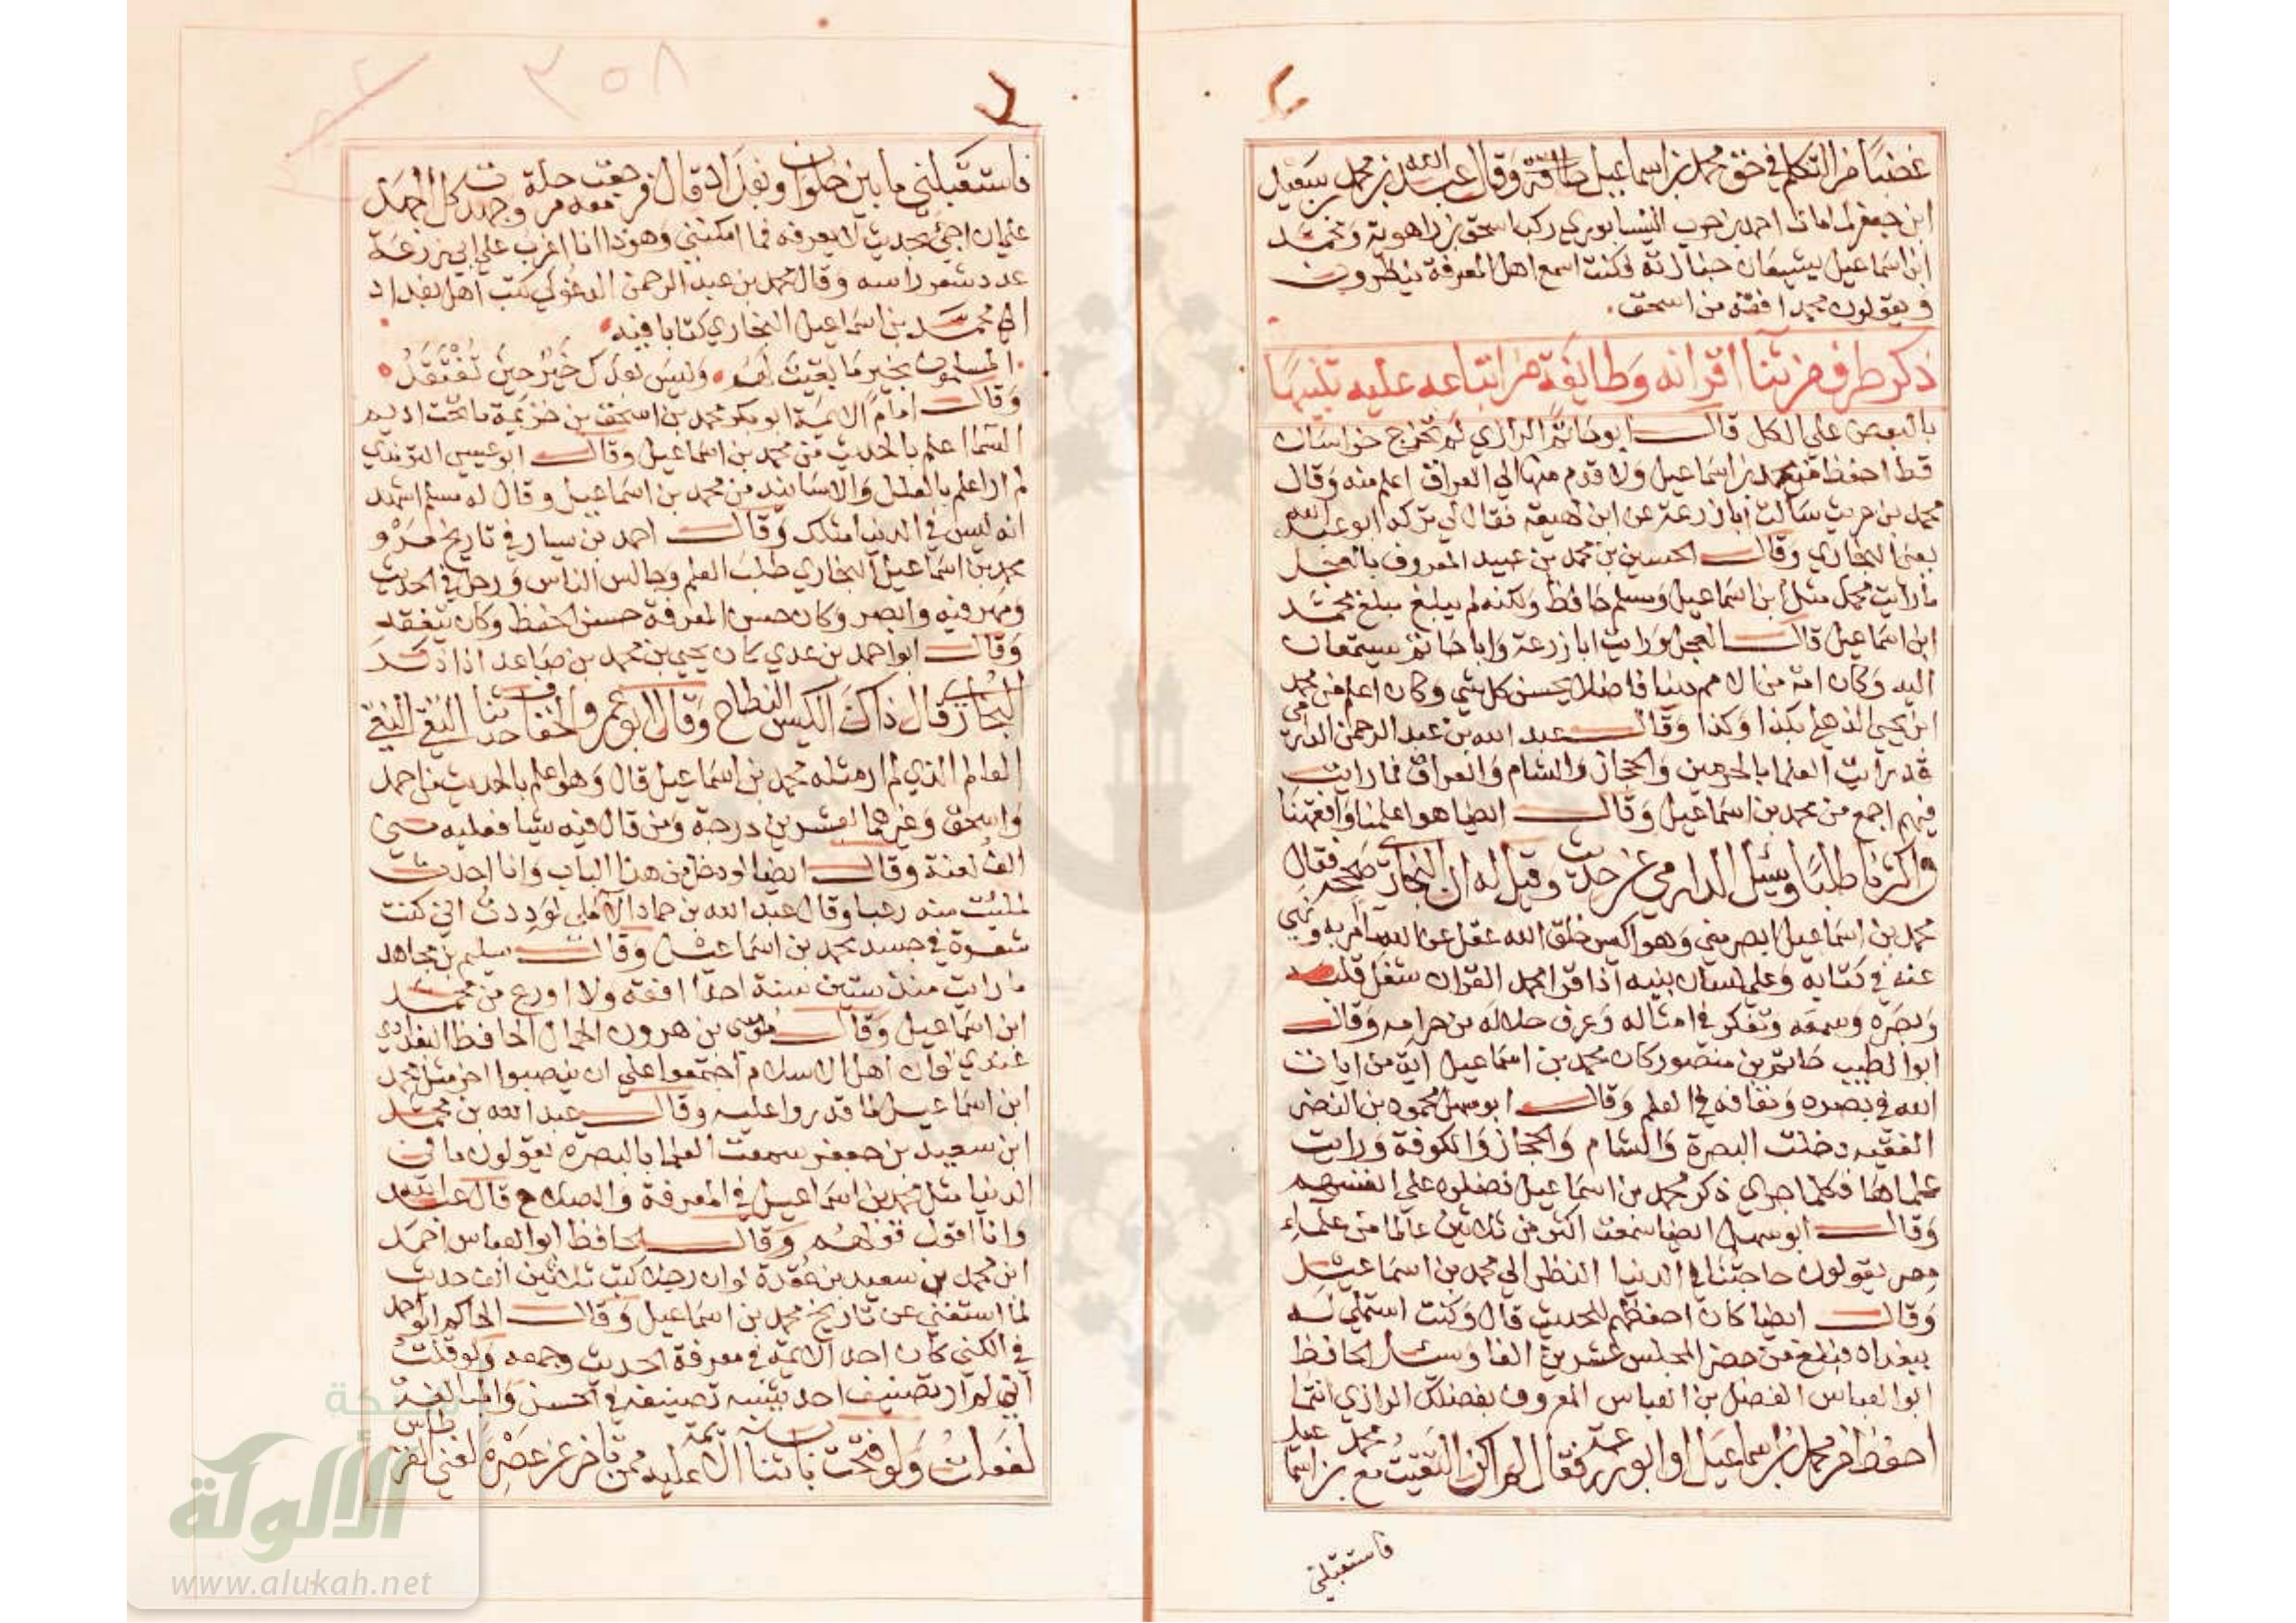 غضبا من التكلم في حق محمد بن اسماعيل صاقة وقال عبد الله بن محمد بن سعيد
ابن جعفر لما مات احمد بن حرب النيسابوري ركب اسحق بن راهوية ومحمد
ابن اسماعيل يشيعان جنازته فكنت اسمع اهل المعرفة ينظرون
ويقولون محمد افقه من اسحق
ذكر طرف من ثنا اقرانه وطايفة من اتباعه عليه تنبيها
بالبعض علي الكل قال ابو حاتم الرازي لم تخرج خراسان
قط احفظ من محمد بن اسماعيل ولا قدم منها الي العراق اعلم منه وقال
محمد بن حريث سالت ابا زرعة عن ابن لهيعة فقال لي تركه ابو عبد الله
يعني البخاري وقال الحسين بن محمد بن عبيد المعروف بالعجل
ما رايت مثل محمد ابن اسماعيل ومسلم حافظ ولكنه لم يبلغ مبلغ محمد
ابن اسماعيل قال العجل ورايت ابا زرعة وابا حاتم يستمعان
اليه وكان امة من الامم دينا فاضلا يحسن كل شي وكان اعلم من محمد
ابن يحيي الذهلي بكذا وكذا وقال عبد الله بن عبد الرحمن الدارمي
قد رايت العلما بالحرمين والحجاز والشام والعراق فما رايت
فيهم اجمع من محمد بن اسماعيل وقال ايضا هو اعلمنا وافقهنا
واكثرنا طلبا وسئل الدارمي عن حديث وقيل له ان البخاري صححه فقال
محمد بن اسماعيل ابصر مني وهو اكيس خلق الله عقل عن الله ما امر به ونهي
عنه في كتابه وعلي لسان نبيه اذا قرا محمد القران شغل قلبه
وبصره وسمعه وتفكر في امثاله وعرف حلاله من حرامه وقال
ابو الطيب حاتم بن منصور كان محمد بن اسماعيل اية من ايات
الله في بصره ونفاذه في العلم وقال ابو سهل محمود بن النضر
الفقيه دخلت البصرة والشام والحجاز والكوفة ورايت
علماها فكلما جري ذكر محمد بن اسماعيل فضلوه علي انفسهم
وقال ابو سهل ايضا سمعت اكثر من ثلاثين عالما من علماء
مصر يقولون حاجتنا في الدنيا النظر الي محمد بن اسماعيل
وقال ايضا كان احفظهم للحديث قال وكنت استملي له
ببغداد فبلغ من حضر المجلس عشرين الفا وسئل الحافظ
ابو العباس الفضل بن العباس المعروف بفضلك الرازي ايما
احفظ محمد بن اسماعيل او ابو زرعة فقال لم اكن التقيت مع محمد بن اسما عيل
فاستقبلني
٣٥٨
فاستقبلني ما بين حلوان وبغداد قال فرجعت معه مرحلة وجهدت كل الجهد
علي ان اجئ بحديث لا يعرفه فما امكنني وهو ذا انا اغرب علي ابي زرعة
عدد شعر راسه وقال محمد بن عبد الرحمن الدغولي كتب اهل بغداد
الي محمد بن اسماعيل البخاري كتابا فيه
المسلمون بخير ما بقيت لهم وليس بعدك خير حين تفتقد
وقال امام الايمة ابو بكر محمد بن اسحق بن خزيمة ما تحت اديم
السما اعلم بالحديث من محمد بن اسماعيل وقال ابو عيسي الترمذي
لم ار اعلم بالعلل والاسانيد من محمد بن اسماعيل وقال له مسلم اشهد
انه ليس في الدنيا مثلك وقال احمد بن سيار في تاريخ مرو
محمد بن اسماعيل البخاري طلب العلم وجالس الناس ورحل في الحديث
ومهر فيه وابصر وكان حسن المعرفة حسن الحفظ وكان يتفقه
وقال ابو احمد بن عدي كان يحيي بن محمد بن صاعد اذا ذكر
البخاري قال ذاك الكبش النطاح وقال ابو عمرو الخفاف حدثنا التقي النقي
العالم الذي لم ار مثله محمد بن اسماعيل قال وهو اعلم بالحديث من احمد
واسحق وغيرهما بعشرين درجة ومن قال فيه شيا فعليه مني
الف لعنة وقال ايضا لو دخل من هذا الباب وانا احدث
لملئت منه رعبا وقال عبد الله بن حماد الآملي لوددت اني كنت
شعرة في جسد محمد بن اسماعيل وقال سليم بن مجاهد
ما رايت منذ ستين سنة احدا افقه ولا اورع من محمد
ابن اسماعيل وقال موسي بن هرون الحمال الحافظ البغدادي
عندي لو ان اهل الاسلام اجتمعوا علي ان ينصبوا اخر مثل محمد
ابن اسماعيل لما قدروا عليه وقال عبد الله بن محمد
ابن سعيد بن جعفر سمعت العلما بالبصره يقولون ما في
الدنيا مثل محمد بن اسماعيل في المعرفة والصلاح قال عبد الله
وانا اقول قولهم وقال الحافظ ابو العباس احمد
ابن محمد بن سعيد بن عقدة لو ان رجلا كتب ثلاثين الف حديث
لما استغني عن تاريخ محمد بن اسماعيل وقال الحاكم ابو احمد
في الكني كان احد الايمة في معرفة الحديث وجمعه ولو قلت
اني لم ار تصنيف احد يشبه تصنيفه في الحسن والمبالغة
لفعلت ولو فتحت باب ثنا الايمة عليه ممن تاخر عن عصره لفني القرطاس
شبكة
الألوكة
www.alukah.net